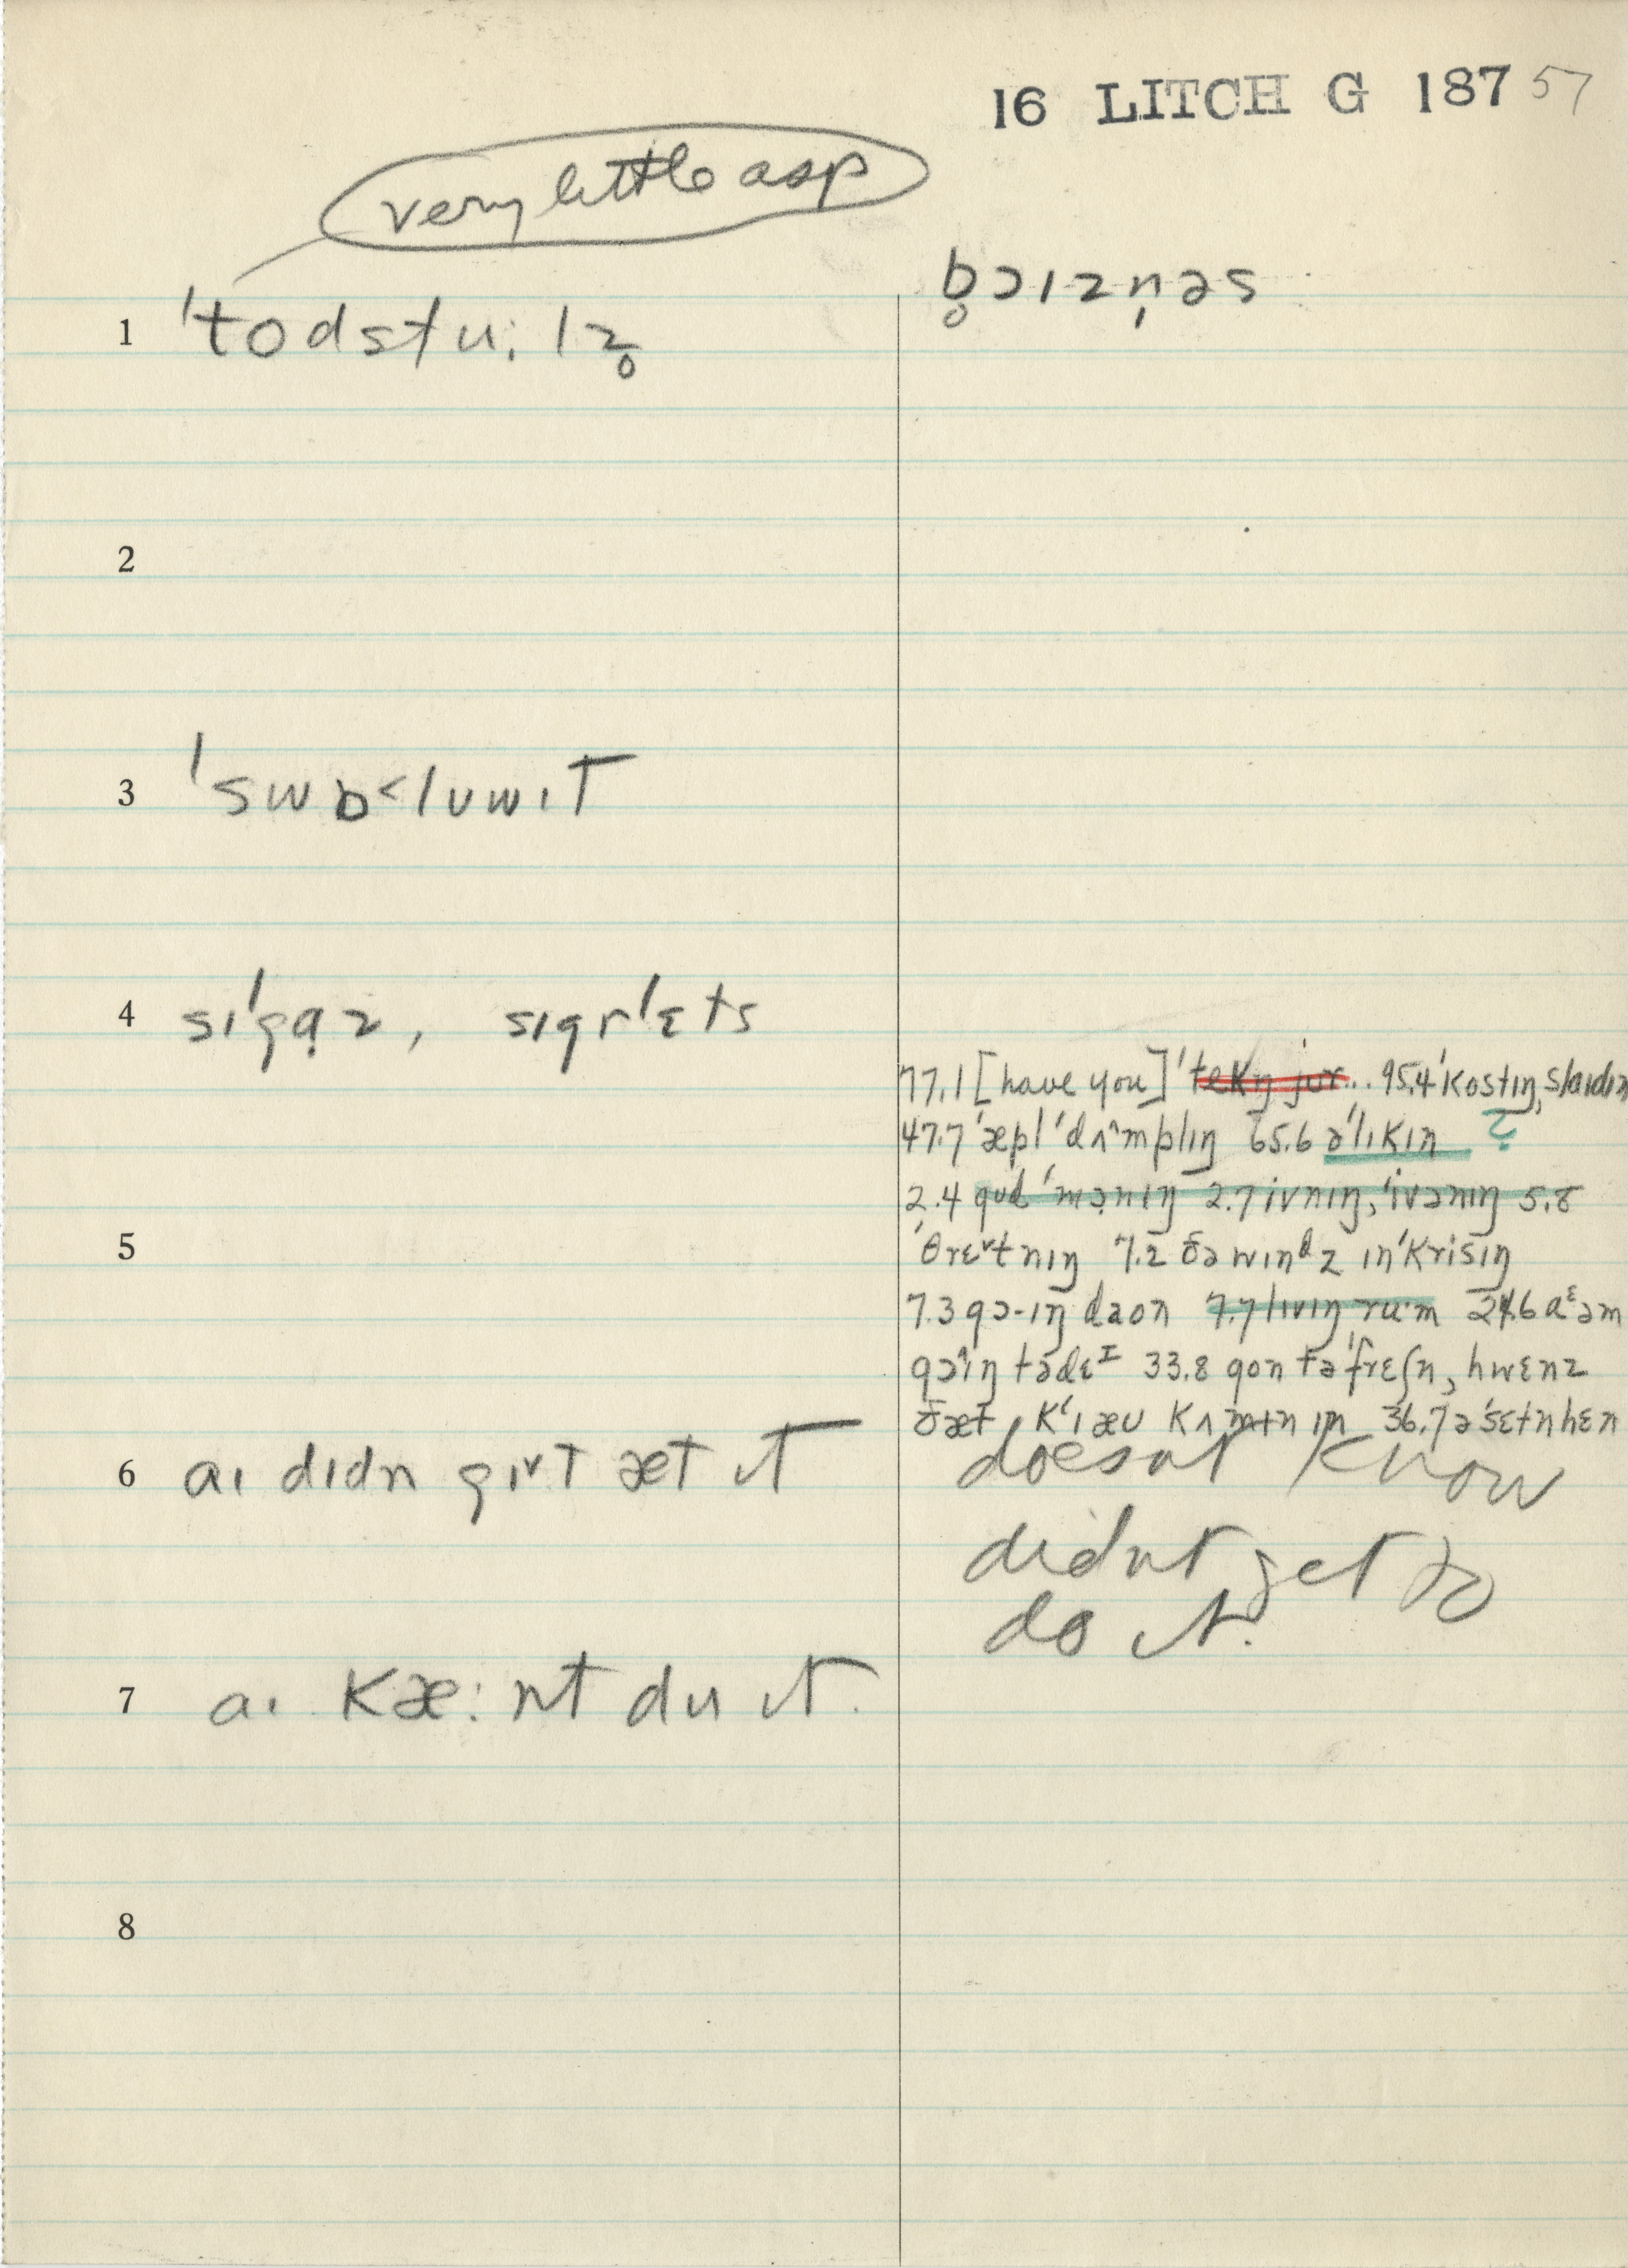 16 LITCH G 187 57
very little asp
1 ˈtodstu:lz̥
b̥ɔɪzn̩əs
2
3 ˈswɒ˂lʊwɪT
4 sɪˈgɑ̣z, sɪgrˈɛts
77.1 [have you] ˈtekŋ jʊr... 95.4 ˈkostɪŋ, slaɪdɪŋ
47.7 ˈæpl ˈdʌ^mplɪŋ 65.6 əˈlɪkɪn ?
2.4 gʊd ˈmɔ̣nɪŋ 2.7 ivnɪŋ, ˈivənɪŋ 5.8
5 ˈθrɛ˅tnɪŋ 7.2 ðə wɪnᵈz ɪnˈkrisɪŋ
7.3 gɔ-ɪŋ daʊn 7.7 lɪvɪŋ ru·m 24.6 aᵋəm
gɔ^ɪŋ tədɛᴵ 33.8 gon təˈfrɛʃn, hwɛnz
ðæt kʻɪæʊ kʌmɪn ɪn 36.7 əˈsɛtnhɛn
6 aɪ dɪdn gɪ˅t æt ɪt
doesnt know
didnt get to
do it.
7 aɪ kæ:nt du ɪt.
8